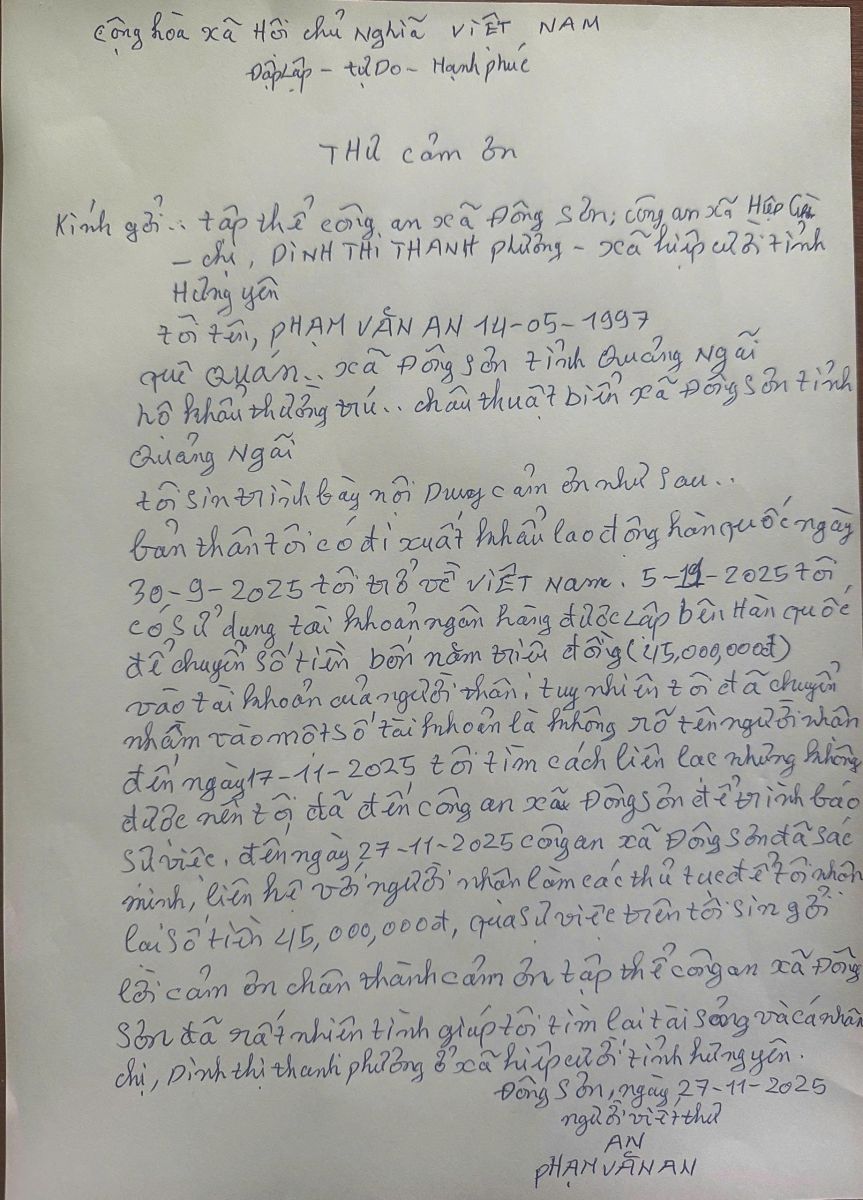 Cộng hòa xã Hội chủ Nghĩa VIỆT NAM
Độc Lập - tự Do - Hạnh phúc
THƯ cảm ơn
Kính gởi.. tập thể công an xã Đông Sơn; công an xã Hiệp
- chị, ĐINH THỊ THANH phường - xã hiệp cười tỉnh
Hưng yên
tôi tên, PHẠM VĂN AN 14-05-1997
quê QUÁN.. xã Đông Sơn tỉnh Quảng Ngãi
hộ khẩu thường trú.. châu thuật biển xã Đông Sơn tỉnh
Quảng Ngãi
tôi sin trình bày nội Dung cảm ơn như sau..
bản thân tôi có đi xuất khẩu lao động hàn quốc ngày
30-9-2025 tôi trở về VIỆT Nam. 5-11-2025 tôi
có sử dụng tài khoản ngân hàng được Lập bên Hàn quốc
để chuyển số tiền bốn năm triệu đồng (45,000,000đ)
vào tài khoản của người thân, tuy nhiên tôi đã chuyển
nhầm vào một số tài khoản là không rõ tên người nhân
đến ngày 17-11-2025 tôi tìm cách liên lạc nhưng không
được nên tôi đã đến công an xã Đông Sơn để trình báo
sử việc. đến ngày 27-11-2025 công an xã Đông Sơn đã sác
minh, liên hệ với người nhân làm các thủ tục để tôi nhân
lại số tiền 45,000,000đ, qua sử việc trên tôi sin gởi
lời cảm ơn chân thành cảm ơn tập thể công an xã Đông
Sơn đã rất nhiên tình giúp tôi tìm lại tài sảng và cá nhân
chị, Đinh thị thanh phường ở xã hiệp cười tỉnh hưng yên.
Đông Sơn, ngày 27-11-2025
người viết thư
AN
PHẠM VĂN AN